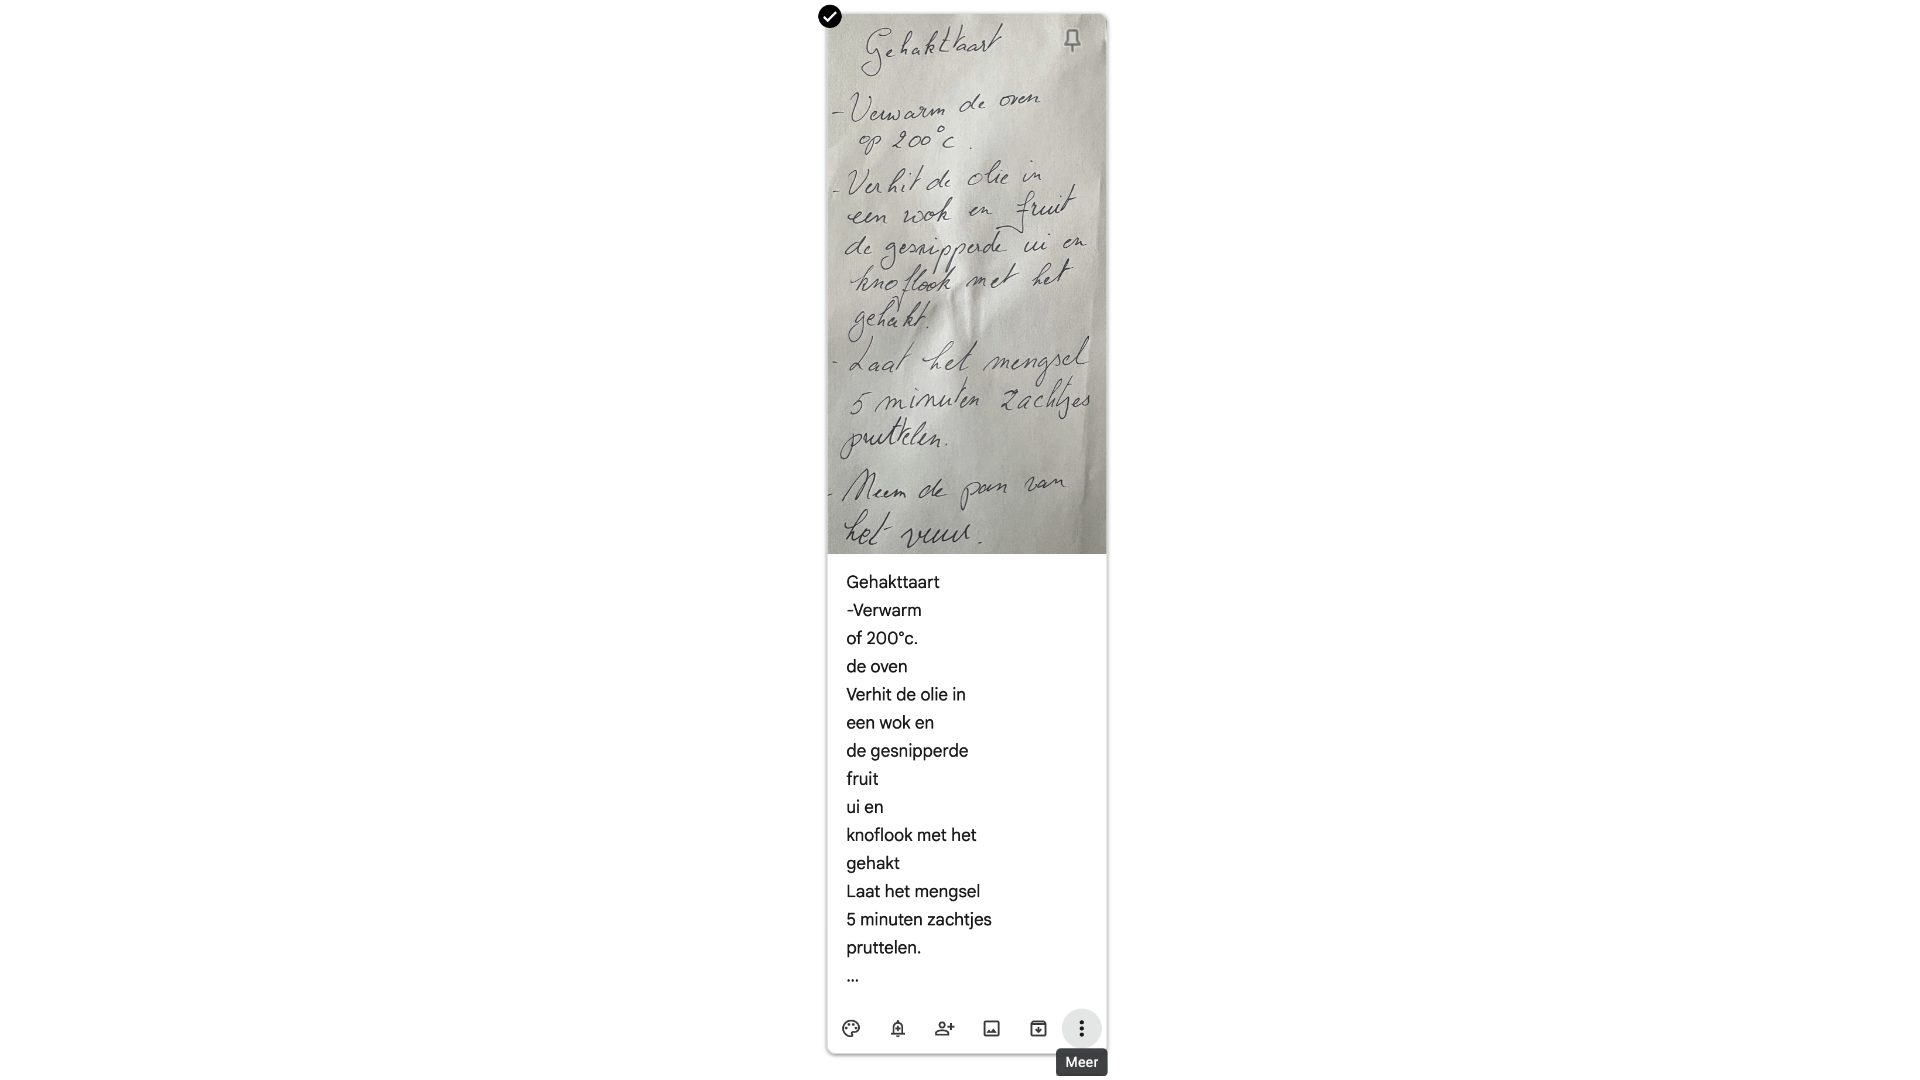 Gehakttaart
- Verwarm de oven
op 200°c.
- Verhit de olie in
een wok en fruit
de gesnipperde ui en
knoflook met het
gehakt.
- Laat het mengsel
5 minuten zachtjes
pruttelen.
- Neem de pan van
het vuur.
Gehakttaart
-Verwarm
of 200°c.
de oven
Verhit de olie in
een wok en
de gesnipperde
fruit
ui en
knoflook met het
gehakt
Laat het mengsel
5 minuten zachtjes
pruttelen.
...
Meer